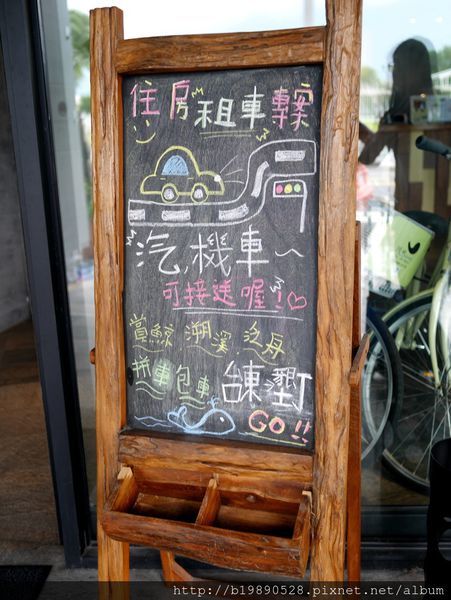 住房租車專案
汽.機車~
可接送喔!♡
賞鯨.溯溪.泛舟
拼車包車 台東墾丁
GO!!
http://b19890528.pixnet.net/album